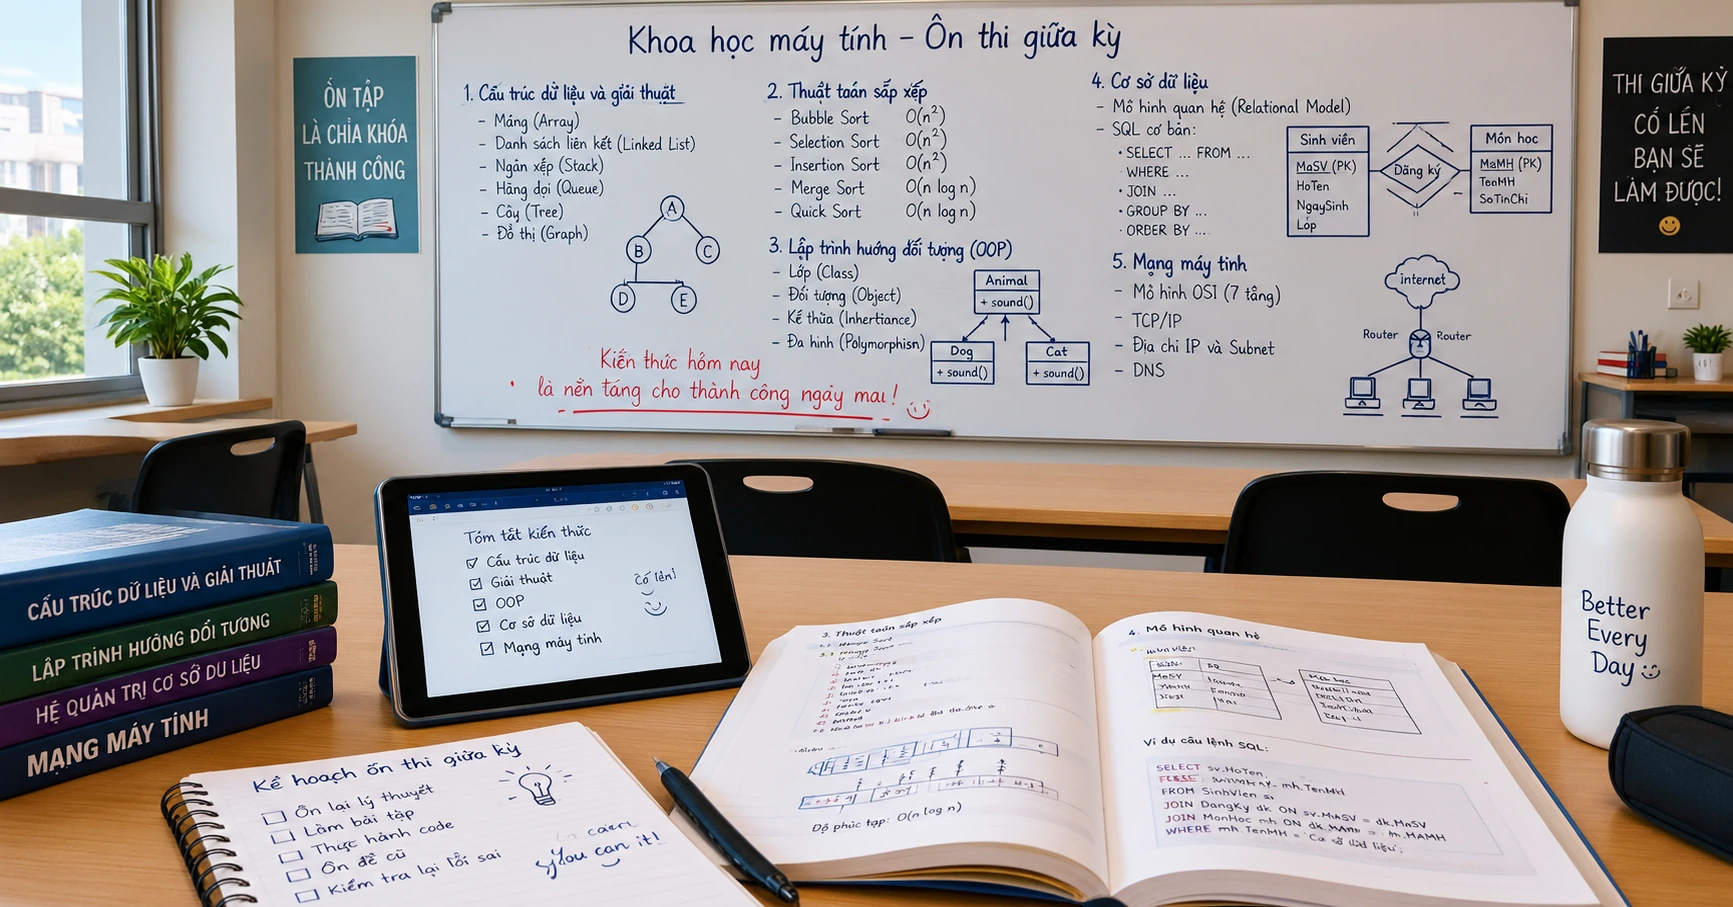 Khoa học máy tính – Ôn thi giữa kỳ
1. Cấu trúc dữ liệu và giải thuật
- Mảng (Array)
- Danh sách liên kết (Linked List)
- Ngăn xếp (Stack)
- Hàng dọi (Queue)
- Cây (Tree)
- Đồ thị (Graph)
A
B
C
D
E
2. Thuật toán sắp xếp
- Bubble Sort O(n²)
- Selection Sort O(n²)
- Insertion Sort O(n²)
- Merge Sort O(n log n)
- Quick Sort O(n log n)
3. Lập trình hướng đối tượng (OOP)
- Lớp (Class)
- Đối tượng (Object)
- Kế thừa (Inhertiance)
- Đa hình (Polymorphisn)
Animal
+ sound()
Dog
+ sound()
Cat
+ sound()
Kiến thức hôm nay
là nền tảng cho thành công ngày mai!
4. Cơ sở dữ liệu
- Mô hình quan hệ (Relational Model)
- SQL cơ bản:
• SELECT ... FROM ...
WHERE ...
• JOIN ...
• GROUP BY ...
• ORDER BY ...
Sinh viên
MaSV (PK)
HoTen
NgaySinh
Lớp
Đăng ký
Môn học
MaMH (PK)
TenMH
SoTinChi
5. Mạng máy tinh
- Mô hình OSI (7 tầng)
- TCP/IP
- Địa chỉ IP và Subnet
- DNS
internet
Router
Router
ÔN TẬP
LÀ CHÌA KHÓA
THÀNH CÔNG
THI GIỮA KỲ
CỐ LÊN
BẠN SẼ
LÀM ĐƯỢC!
CẤU TRÚC DỮ LIỆU VÀ GIẢI THUẬT
LẬP TRÌNH HƯỚNG ĐỐI TƯỢNG
HỆ QUẢN TRỊ CƠ SỞ DỮ LIỆU
MẠNG MÁY TÍNH
Tóm tắt kiến thức
Cấu trúc dữ liệu
Giải thuật
OOP
Cơ sở dữ liệu
Mạng máy tính
Cố lên!
Kế hoạch ôn thi giữa kỳ
Ôn lại lý thuyết
Làm bài tập
Thực hành code
Ôn đề cũ
Kiểm tra lại lỗi sai
You can it!
3. Thuật toán sắp xếp
Độ phúc tạp: O(n log n)
4. Mô hình quan hệ
MaSV
Ví dụ câu lệnh SQL:
SELECT sv.HoTen,
mh.TenMH
FROM SinhVien
JOIN DangKy dk ON sv.MaSV = dk.MaSV
JOIN MonHoc mh ON
WHERE mh.TenMH =
Better
Every
Day